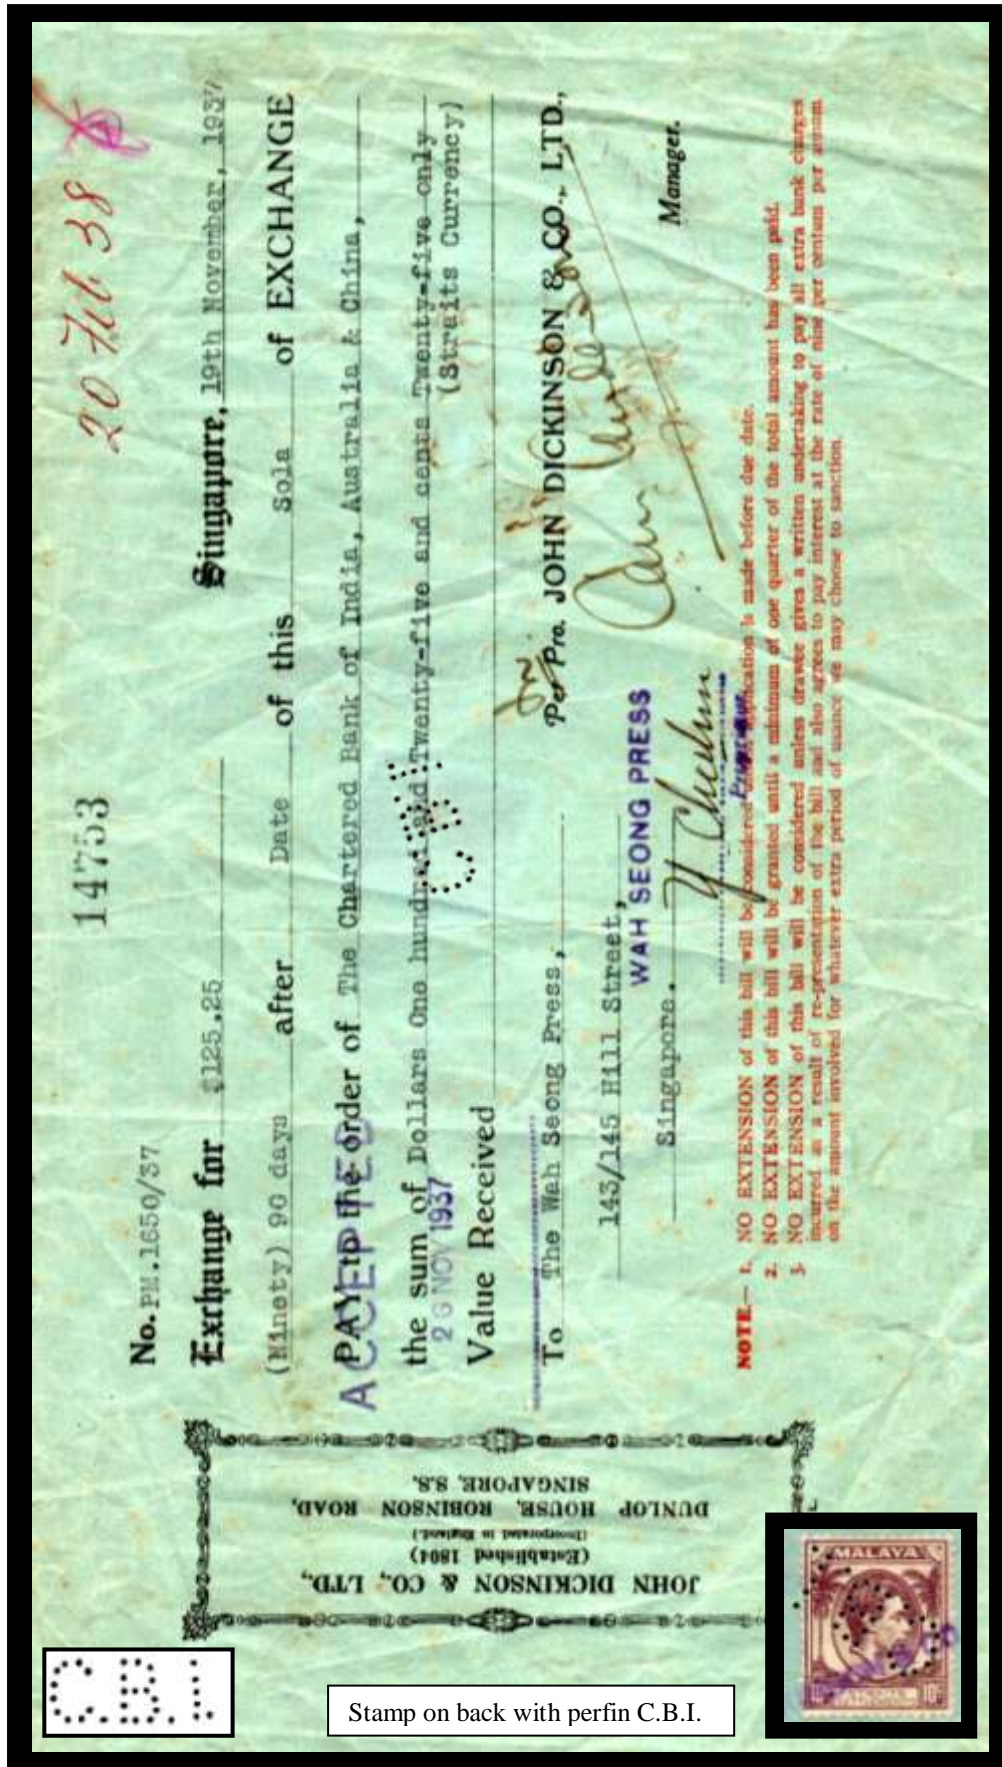 20 Feb 38
14753
No. PM.1650/37
Singapore, 19th November, 1937
Exchange for $125.25
(Ninety) 90 days after Date of this Sola of EXCHANGE
PAY to the order of The Chartered Bank of India, Australia & China,
ACCEPTED
the sum of Dollars One hundred and Twenty-five and cents Twenty-five only
(Straits Currency)
26 NOV 1937
C.B.I.
Value Received
Per Pro. JOHN DICKINSON & CO., LTD.,
To The Wah Seong Press,
143/145 Hill Street,
WAH SEONG PRESS
Singapore.
Manager.
NOTE.— 1. NO EXTENSION of this bill will be considered unless application is made before due date.
2. NO EXTENSION of this bill will be granted until a minimum of one quarter of the total amount has been paid.
3. NO EXTENSION of this bill will be considered unless drawee gives a written undertaking to pay all extra bank charges
incurred as a result of re-presentation of the bill and also agrees to pay interest at the rate of nine per centum per annum
on the amount involved for whatever extra period of usance we may choose to sanction.
JOHN DICKINSON & CO., LTD.,
(Established 1804)
(Incorporated in England.)
DUNLOP HOUSE, ROBINSON ROAD,
SINGAPORE, S.S.
C.B.I.
Stamp on back with perfin C.B.I.
MALAYA
10c